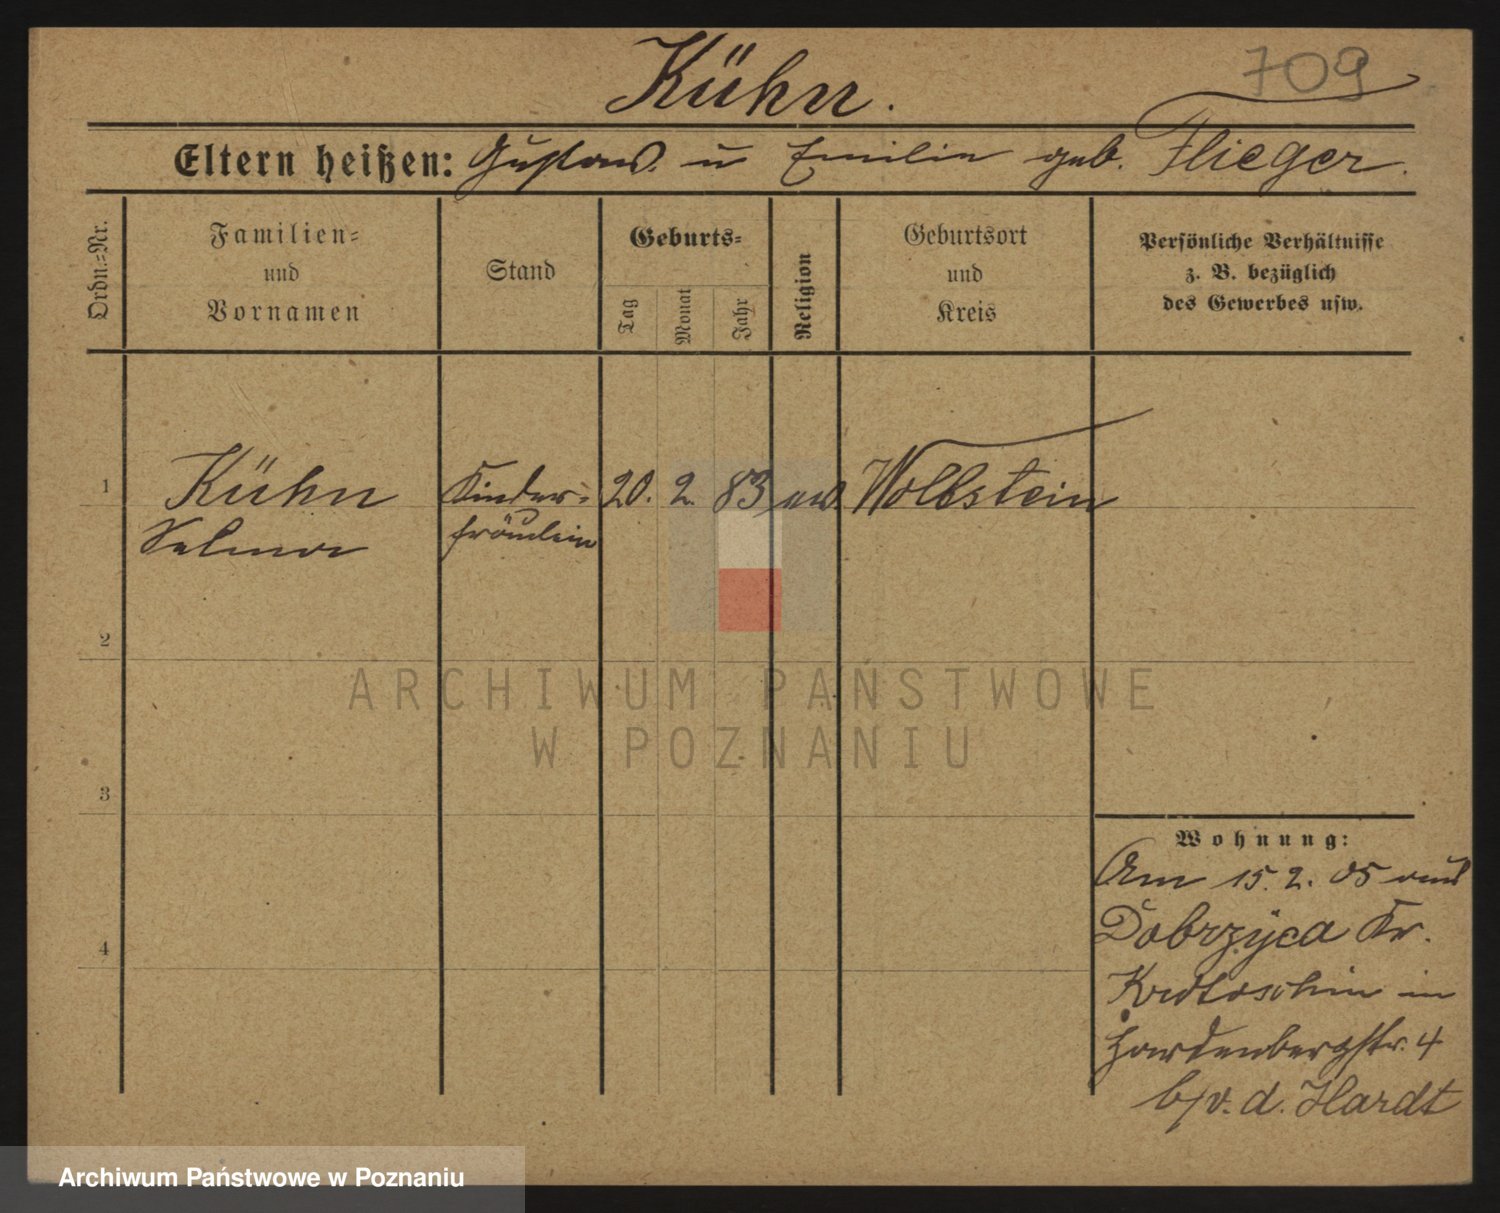 709
Kühn.
Eltern heißen: Gustav u Emilie geb. Flieger.
Ordn.=Nr.
Familien=
und
Vornamen
Stand
Geburts=
Tag
Monat
Jahr
Religion
Geburtsort
und
Kreis
Persönliche Verhältnisse
z. B. bezüglich
des Gewerbes usw.
1
Kühn
Selma
Kinder=
fräulein
20. 2. 83
ev.
Wollstein
2
3
4
Wohnung:
Am 15. 2. 05 aus
Dobrzyca Kr.
Krotoschin in
Hardenbergstr. 4
b/v. d. Hardt
ARCHIWUM PAŃSTWOWE
W POZNANIU
Archiwum Państwowe w Poznaniu